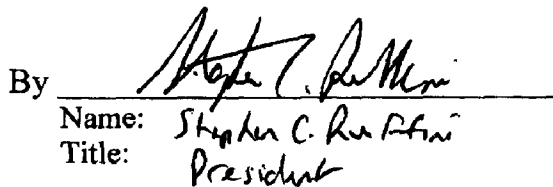 By Stephen C. Ruffini
Name: Stephen C. Ruffini
Title: President